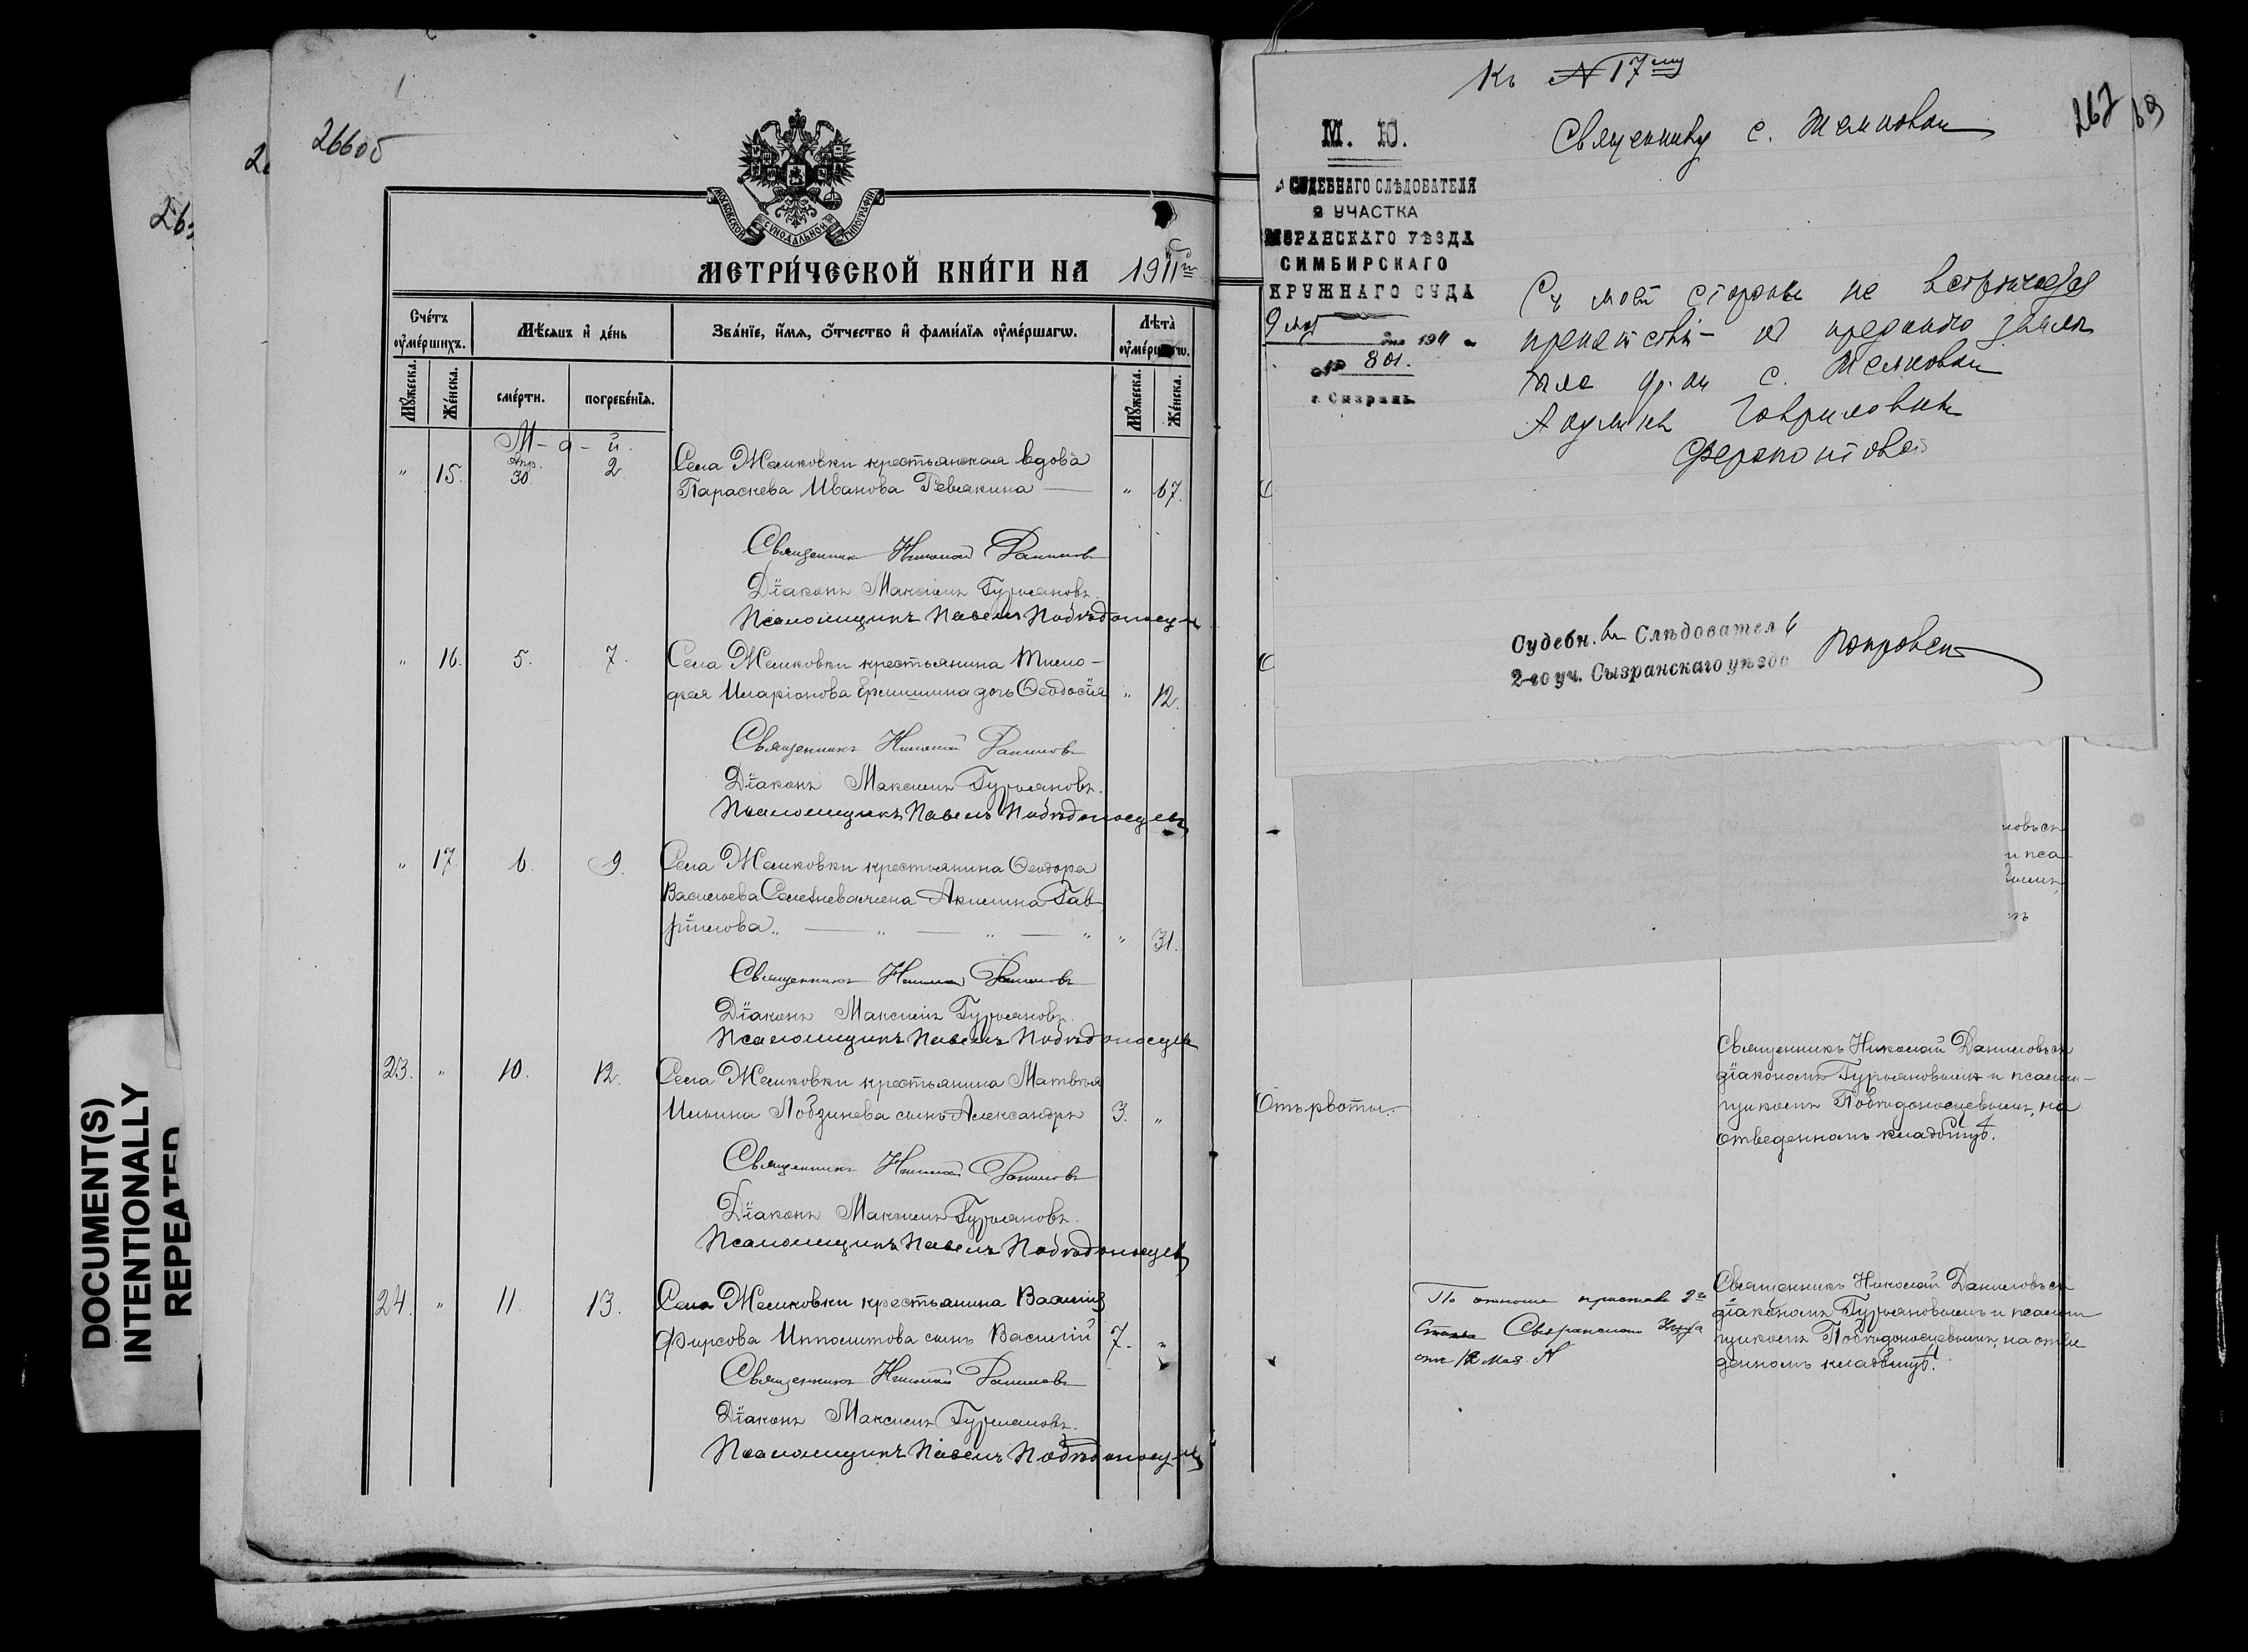 266об
МОСКОВСКОЙ СѴНОДАЛЬНОЙ ТИПОГРАФІИ
МЕТРИ́ЧЕСКОЙ КНИ́ГИ НА 1911й
Сче́тъ оу҆ме́ршихъ.
Мѣ́сѧцъ и҆ де́нь
Зва́нїе, и҆́мѧ, ѻ҆́тчество и҆ фами́лїѧ оу҆ме́ршагѡ.
Лѣта̀ оу҆ме́ршагѡ.
Мꙋ́жеска.
Же́нска.
сме́рти.
погребе́нїѧ.
Мꙋ́жеска.
Же́нска.
М-а-й.
" 15. Апр. 30. 2. Села Жемковки крестьянская вдова
Параскева Иванова Ревякина — " 67.
Священникъ Николай Даниловъ
Діаконъ Максимъ Гурьяновъ.
Псаломщикъ Павелъ Побѣдоносцевъ
" 16. 5. 7. Села Жемковки крестьянина Тимо-
фея Иларіонова дочь Ѳеодосія " 12.
Священникъ Николай Даниловъ
Діаконъ Максимъ Гурьяновъ.
Псаломщикъ Павелъ Побѣдоносцевъ
" 17. 6. 9. Села Жемковки крестьянина Ѳеодора
Васильева жена Акилина Гав-
рилова " — " — " — " " 31.
Священникъ Николай Даниловъ
Діаконъ Максимъ Гурьяновъ.
Псаломщикъ Павелъ Побѣдоносцевъ
23. " 10. 12. Села Жемковки крестьянина Матвѣя
Ильина Лобзинева сынъ Александръ 3. "
Священникъ Николай Даниловъ
Діаконъ Максимъ Гурьяновъ.
Псаломщикъ Павелъ Побѣдоносцевъ
24. " 11. 13. Села Жемковки крестьянина Василія
Фирсова Ипполитова сынъ Василій 7. "
Священникъ Николай Даниловъ
Діаконъ Максимъ Гурьяновъ.
Псаломщикъ Павелъ Побѣдоносцевъ
DOCUMENT(S)
INTENTIONALLY
REPEATED
Къ № 17му
267
69
М. Ю.
СУДЕБНАГО СЛѢДОВАТЕЛЯ
2 УЧАСТКА
СЫЗРАНСКАГО УѢЗДА
СИМБИРСКАГО
ОКРУЖНАГО СУДА
9 мая дня 1911 г.
№ 801.
г. Сызрань.
Священнику с. Жемковки
Съ моей стороны не встрѣчается
препятствій къ преданію землѣ
тѣла кр-ки с. Жемковки
Акулины Гавриловны
Ферапонтовой
Судебн. Слѣдователь
2-го уч. Сызранскаго уѣзда Покровскій
ловъ съ
и пса-
Отъ рвоты.
Священникъ Николай Даниловъ съ
діакономъ Гурьяновымъ и псалом-
щикомъ Побѣдоносцевымъ, на
отведенномъ кладбищѣ.
По отношен. пристава 2го
Стана Сызранскаго Уѣзда
отъ 12 Мая №
Священникъ Николай Даниловъ съ
діакономъ Гурьяновымъ и псалом
щикомъ Побѣдоносцевымъ, на отве
денномъ кладбищѣ.